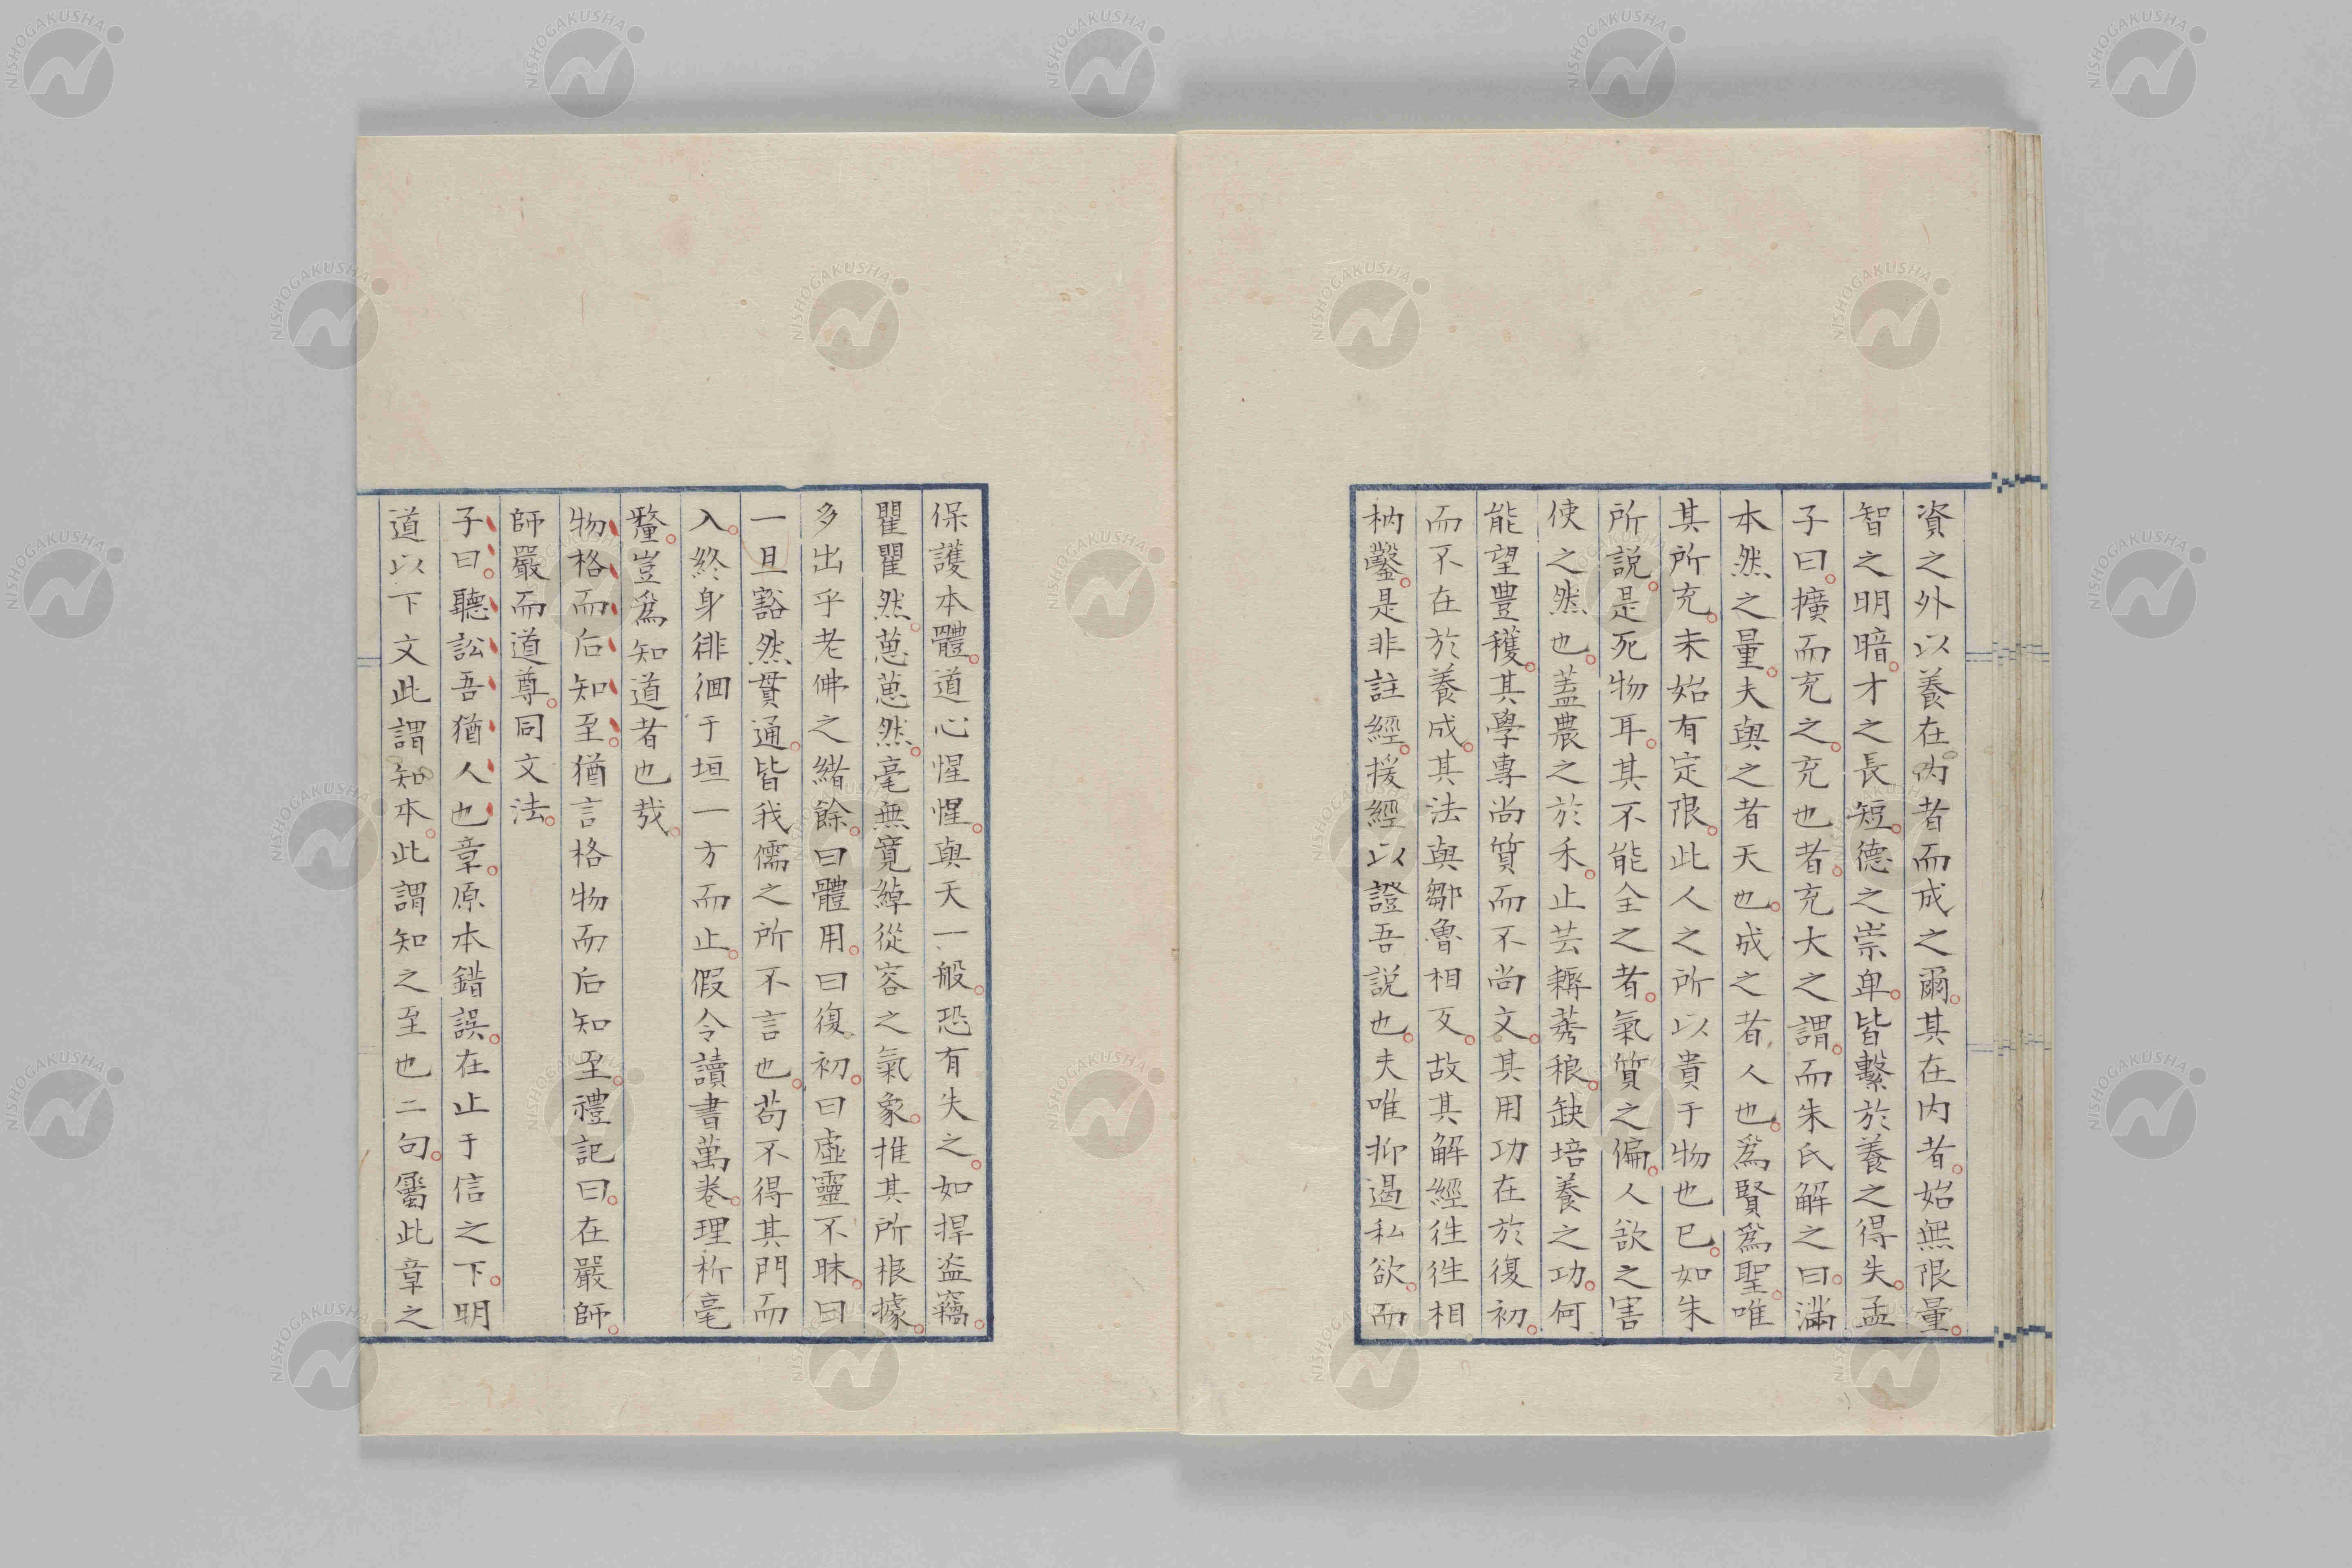 資之外以養在内者而成之爾。其在内者。始無限量。
智之明暗。才之長短。德之崇卑。皆繫於養之得失。孟
子曰。擴而充之。充也者。充大之謂。而朱氏解之曰。滿
本然之量。夫與之者天也。成之者人也。爲賢爲聖。唯
其所充。未始有定限。此人之所以貴于物也已。如朱
所説。是死物耳。其不能全之者。氣質之偏。人欲之害
使之然也。蓋農之於禾。止芸耨莠稂。缺培養之功。何
能望豐穫。其學專尚質而不尚文。其用功在於復初。
而不在於養成。其法與鄒魯相反。故其解經徃徃相
枘鑿。是非註經。援經以證吾説也。夫唯抑遏私欲。而
保護本體。道心惺惺。與天一般。恐有失之。如捍盜竊。
瞿瞿然。葸葸然。毫無寛綽從容之氣象。推其所根據。
多出乎老佛之緒餘。曰體用。曰復初。曰虛靈不昧。曰
一旦豁然貫通。皆我儒之所不言也。苟不得其門而
入。終身徘徊于垣一方而止。假令讀書萬卷。理析毫
釐。豈爲知道者也哉。
物格而后知至。猶言格物而后知至。禮記曰。在嚴師。
師嚴而道尊。同文法。
子曰。聽訟吾猶人也章。原本錯誤。在止于信之下。明
道以下文此謂知本。此謂知之至也二句。屬此章之
NISHOGAKUSHA